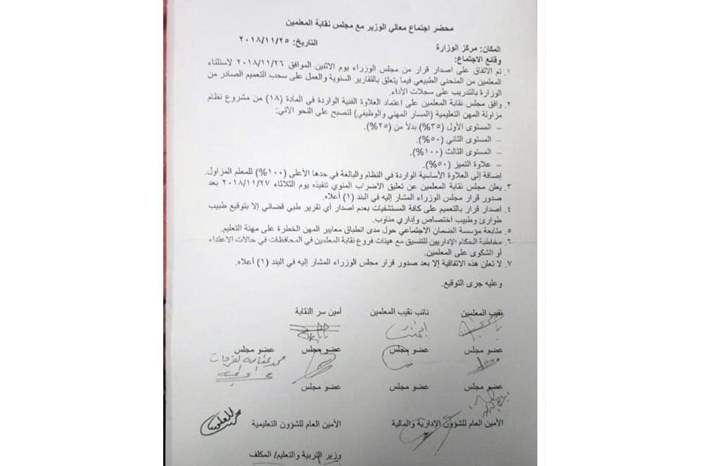 محضر اجتماع معالي الوزير مع مجلس نقابة المعلمين
المكان: مركز الوزارة
التاريخ: ٢٠١٨/١١/٢٥
وقائع الاجتماع:
١. تم الاتفاق على اصدار قرار من مجلس الوزراء يوم الاثنين الموافق ٢٠١٨/١١/٢٦ لاستثناء
المعلمين من المنحنى الطبيعي فيما يتعلق بالتقارير السنوية والعمل على سحب التعميم الصادر من
الوزارة بالتدريب على سجلات الأداء.
٢. وافق مجلس نقابة المعلمين على اعتماد العلاوة الفنية الواردة في المادة (١٨) من مشروع نظام
مزاولة المهن التعليمية (المسار المهني والوظيفي) لتصبح على النحو الآتي:
– المستوى الأول (٣٥%) بدلاً من (٢٥%).
– المستوى الثاني (٥٠%).
– المستوى الثالث (١٠٠%).
– علاوة التميز (٥٠%).
إضافة إلى العلاوة الأساسية الواردة في النظام والبالغة في حدها الأعلى (١٠٠%) للمعلم المزاول.
٣. يعلن مجلس نقابة المعلمين عن تعليق الاضراب المنوي تنفيذه يوم الثلاثاء ٢٠١٨/١١/٢٧ بعد
صدور قرار مجلس الوزراء المشار إليه في البند (١) أعلاه.
٤. اصدار قرار بالتعميم على كافة المستشفيات بعدم اصدار أي تقرير طبي قضائي إلا بتوقيع طبيب
طوارئ وطبيب اختصاص وإداري مناوب.
٥. متابعة مؤسسة الضمان الاجتماعي حول مدى انطباق معايير المهن الخطرة على مهنة التعليم.
٦. مخاطبة الحكام الإداريين للتنسيق مع هيئات فروع نقابة المعلمين في المحافظات في حالات الاعتداء
أو الشكوى على المعلمين.
٧. لا تعلن هذه الاتفاقية إلا بعد صدور قرار مجلس الوزراء المشار إليه في البند (١) أعلاه.
وعليه جرى التوقيع.
نقيب المعلمين
نائب نقيب المعلمين
أمين سر النقابة
عضو مجلس
عضو مجلس
عضو مجلس
عضو مجلس
عضو مجلس
عضو مجلس
عضو مجلس
الأمين العام للشؤون الإدارية والمالية
الأمين العام للشؤون التعليمية
وزير التربية والتعليم/ المكلف